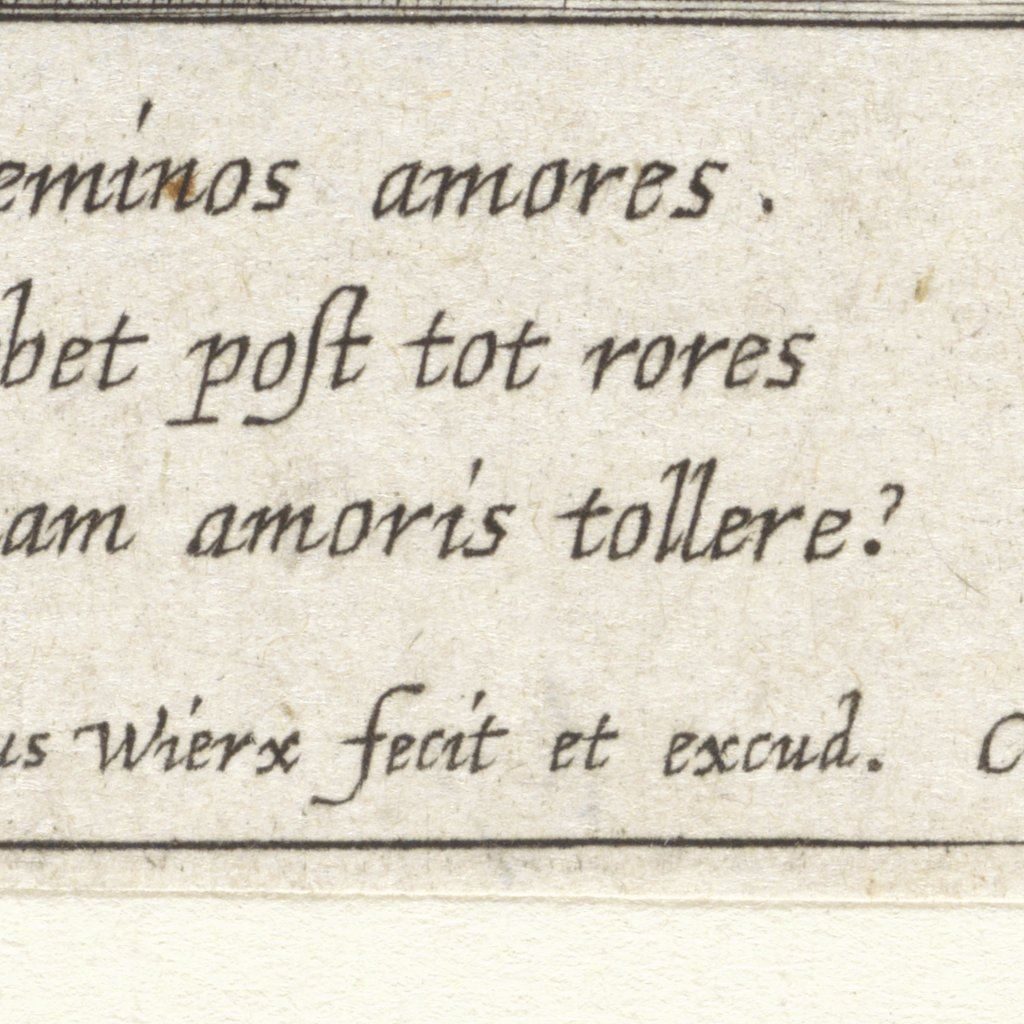 eminos amores.
bet poſt tot rores
am amoris tollere?
us Wierx fecit et excud. C